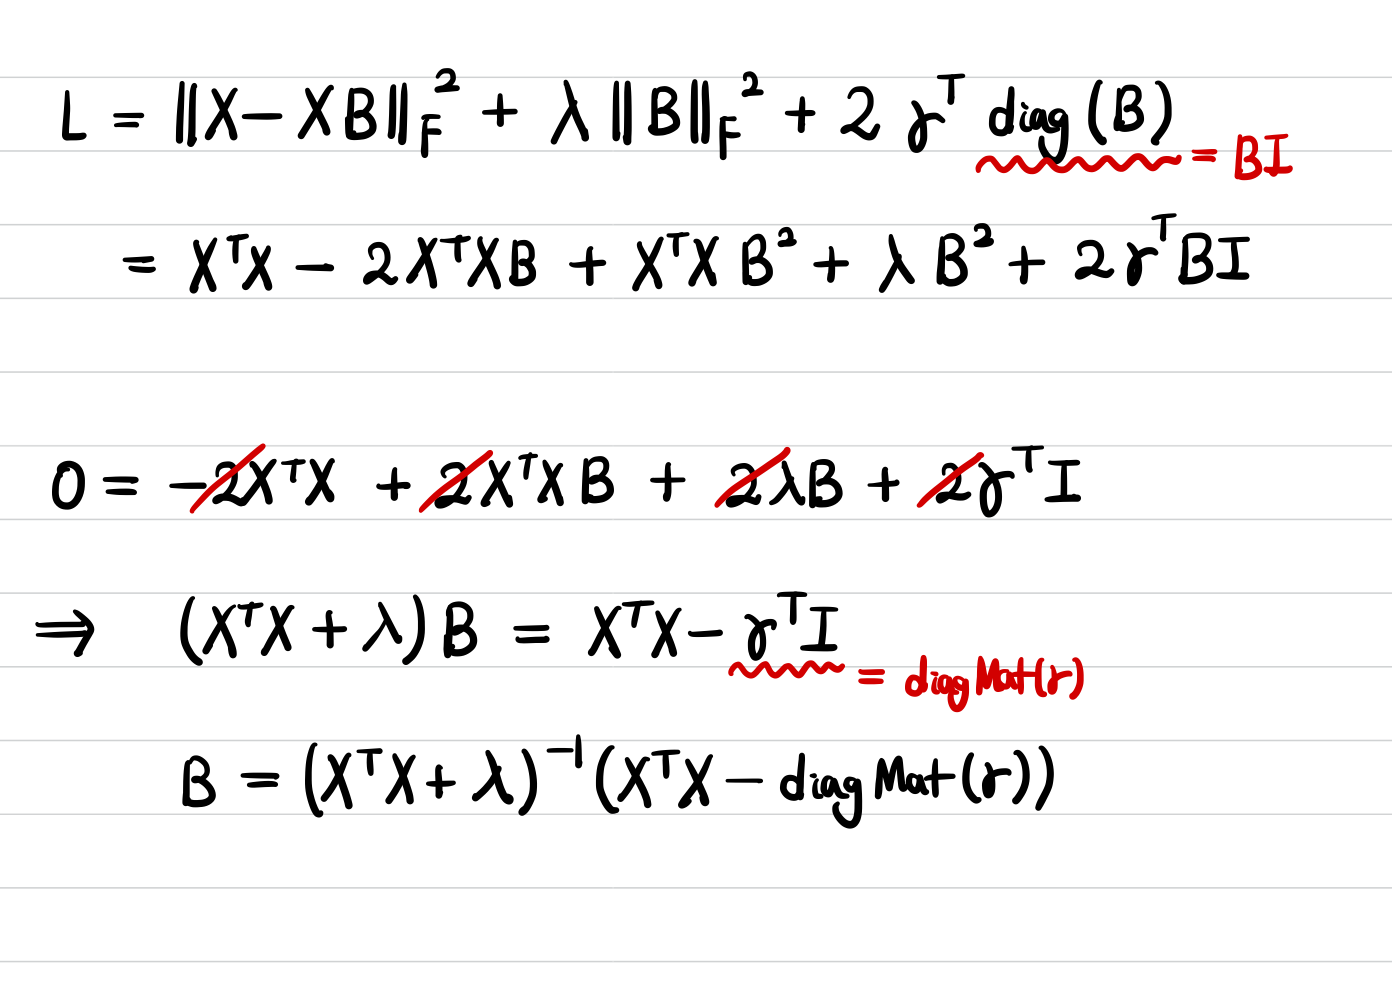 L = ‖X − XB‖_F² + λ‖B‖_F² + 2γᵀ diag(B) = BI
= XᵀX − 2XᵀXB + XᵀXB² + λB² + 2γᵀBI
0 = −2XᵀX + 2XᵀXB + 2λB + 2γᵀI
⇒ (XᵀX + λ)B = XᵀX − γᵀI = diagMat(γ)
B = (XᵀX + λ)⁻¹(XᵀX − diagMat(γ))